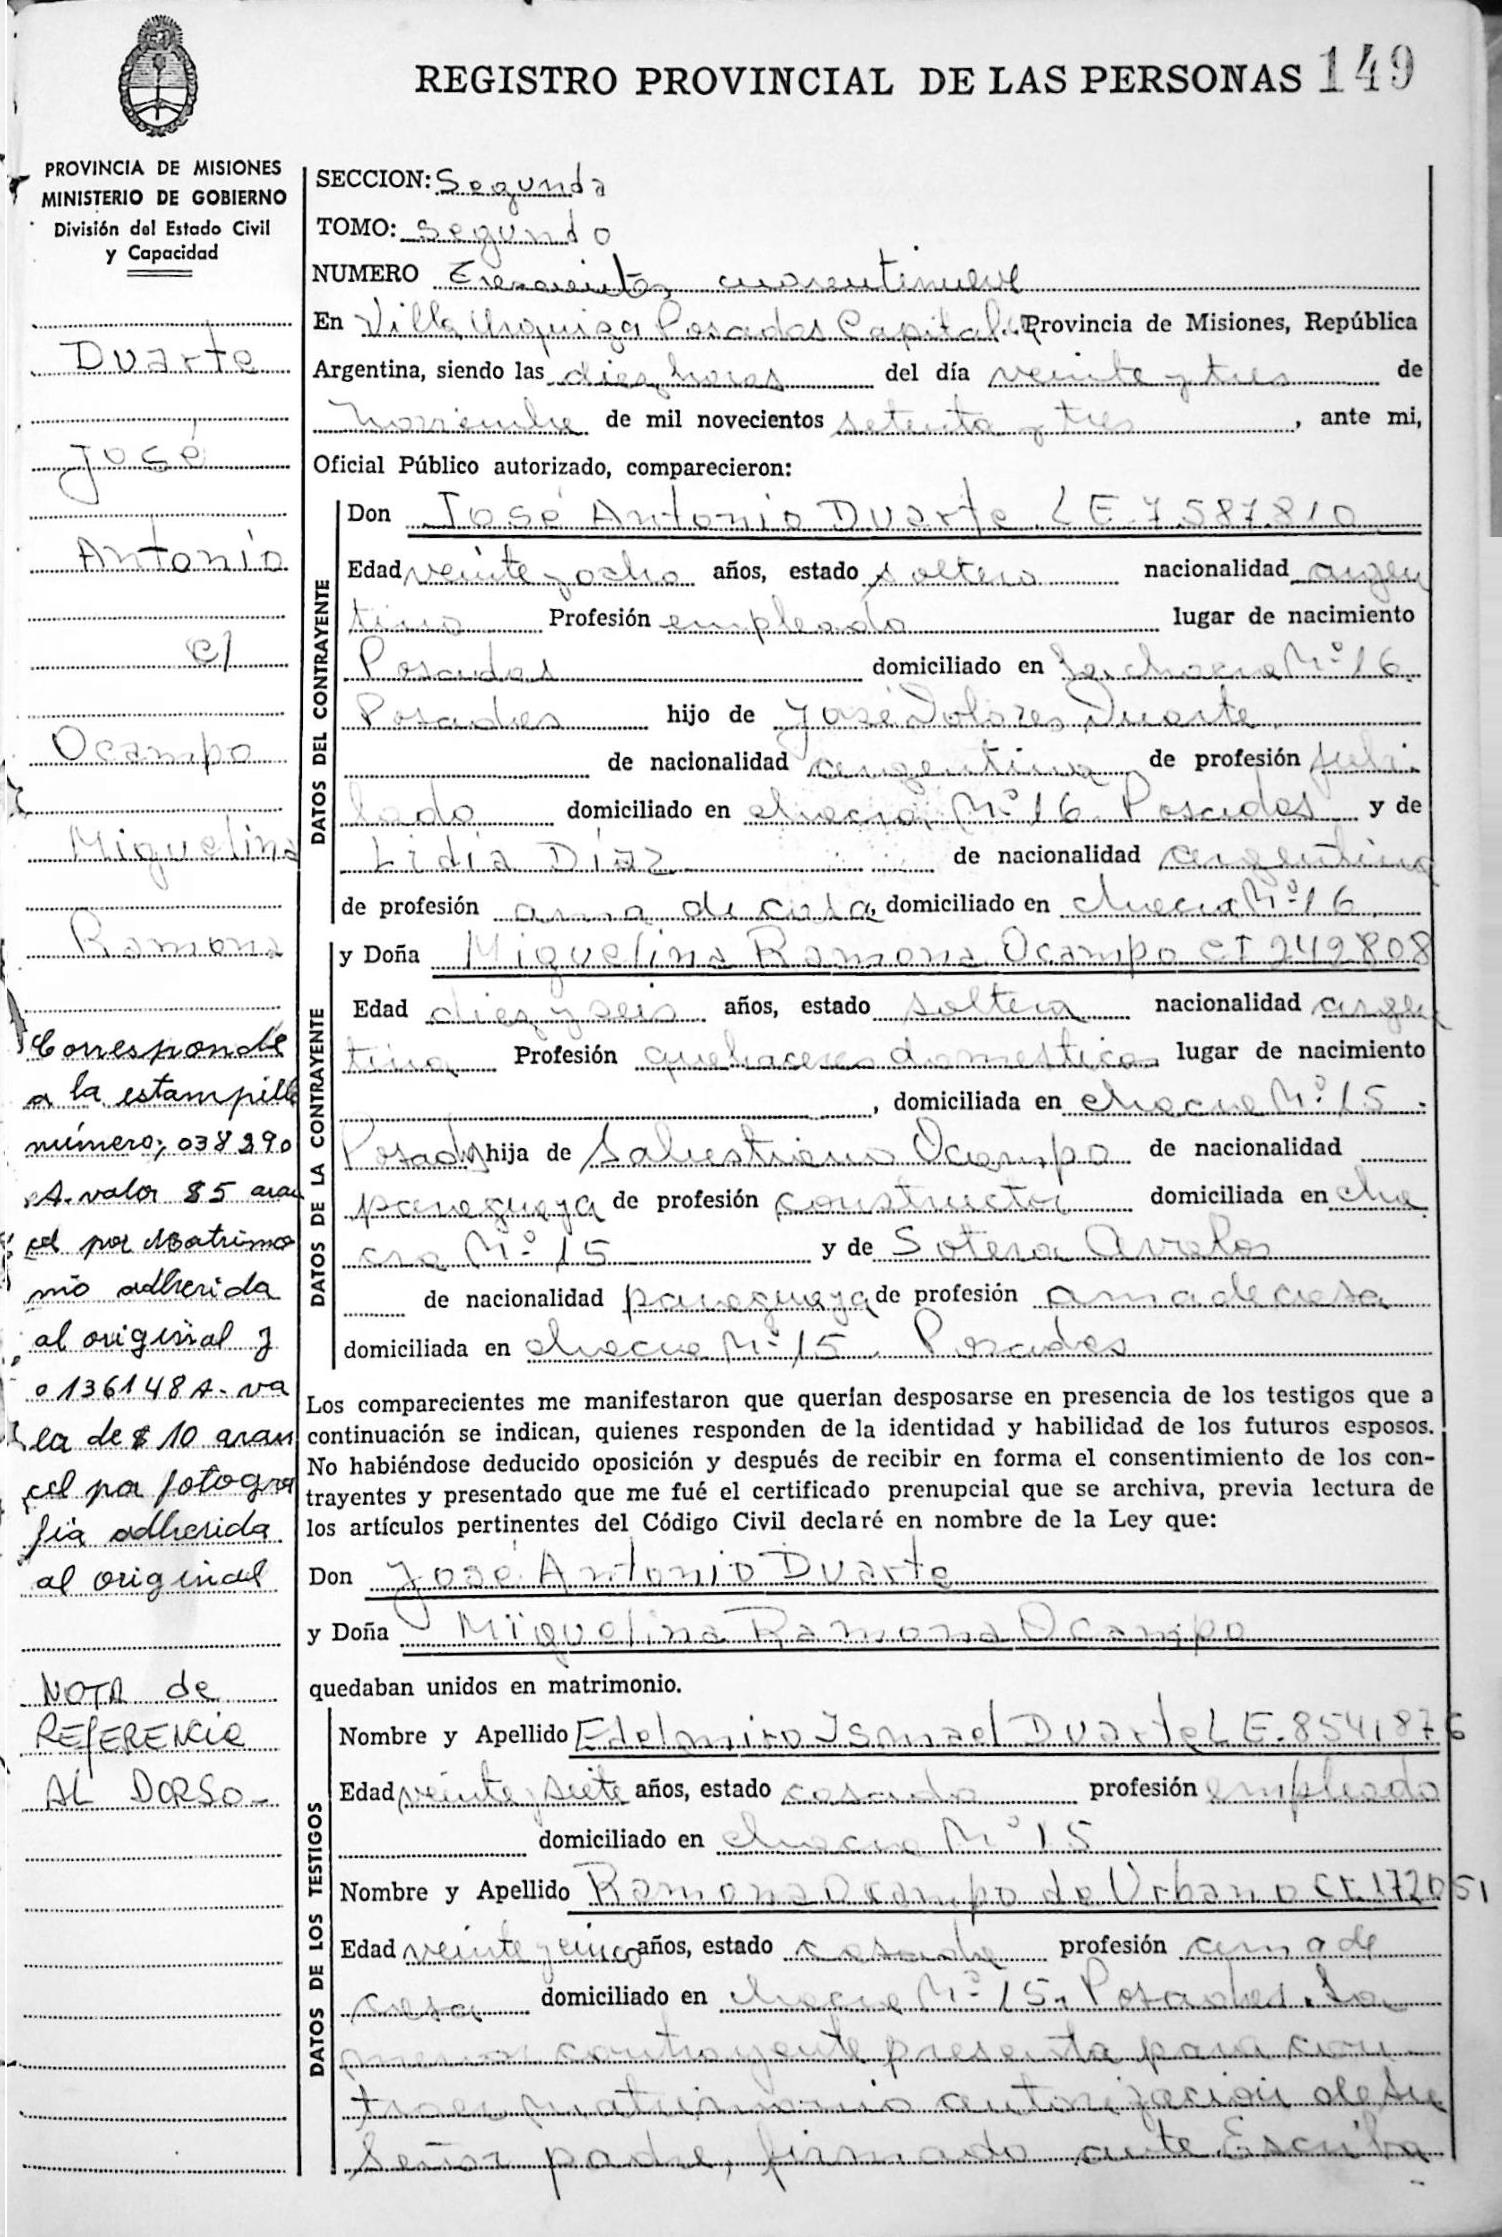 REGISTRO PROVINCIAL DE LAS PERSONAS 149
PROVINCIA DE MISIONES
MINISTERIO DE GOBIERNO
División del Estado Civil
y Capacidad
Duarte
José
Antonio
c/
Ocampo
Miguelina
Ramona
Corresponde
a la estampilla
número; 038290
A. valor $5 aran
cel por Matrimo
nio adherida
al original y
0136148 A- va
lor de $ 10 aran
cel por fotogra
fía adherida
al original
NOTA de
REfERENCIA
AL DORSO-
SECCION: Segunda
TOMO: Segundo
NUMERO Trescientos cuarentinueve
En Villa Urquiza Posadas Capital Provincia de Misiones, República
Argentina, siendo las diez horas del día veinte y tres de
Noviembre de mil novecientos setenta y tres, ante mi,
Oficial Público autorizado, comparecieron:
DATOS DEL CONTRAYENTE
Don José Antonio Duarte LE-7587810
Edad veinte y ocho años, estado soltero nacionalidad argen
tino Profesión empleado lugar de nacimiento
Posadas domiciliado en la chacra Nº 16.
Posadas hijo de José Dolores Duarte
de nacionalidad argentina de profesión jubi
lado domiciliado en chacra Nº 16 Posadas y de
Lidia Díaz de nacionalidad argentina
de profesión ama de casa, domiciliado en chacra Nº 16
DATOS DE LA CONTRAYENTE
y Doña Miguelina Ramona Ocampo CI 242808
Edad diez y seis años, estado soltera nacionalidad argen
tina Profesión quehaceres domesticos lugar de nacimiento
, domiciliada en chacra Nº 15.
Posadas hija de Salustiano Ocampo de nacionalidad
paraguaya de profesión constructor domiciliada en cha
cra Nº 15 y de Sotera Avalos
de nacionalidad paraguaya de profesión ama de casa
domiciliada en chacra Nº 15. Posadas
Los comparecientes me manifestaron que querían desposarse en presencia de los testigos que a
continuación se indican, quienes responden de la identidad y habilidad de los futuros esposos.
No habiéndose deducido oposición y después de recibir en forma el consentimiento de los con-
trayentes y presentado que me fué el certificado prenupcial que se archiva, previa lectura de
los artículos pertinentes del Código Civil declaré en nombre de la Ley que:
Don José Antonio Duarte
y Doña Miguelina Ramona Ocampo
quedaban unidos en matrimonio.
DATOS DE LOS TESTIGOS
Nombre y Apellido Edelmiro Ismael Duarte LE-8541876
Edad veinte y siete años, estado casado profesión empleado
domiciliado en chacra Nº 15
Nombre y Apellido Ramona Ocampo de Urbano CI. 172051
Edad veinte y cinco años, estado casada profesión ama de
casa domiciliado en chacra Nº 15. Posadas. La
menor contrayente presenta para con
traer matrimonio autorización de su
Señor padre, firmado ante Escriba